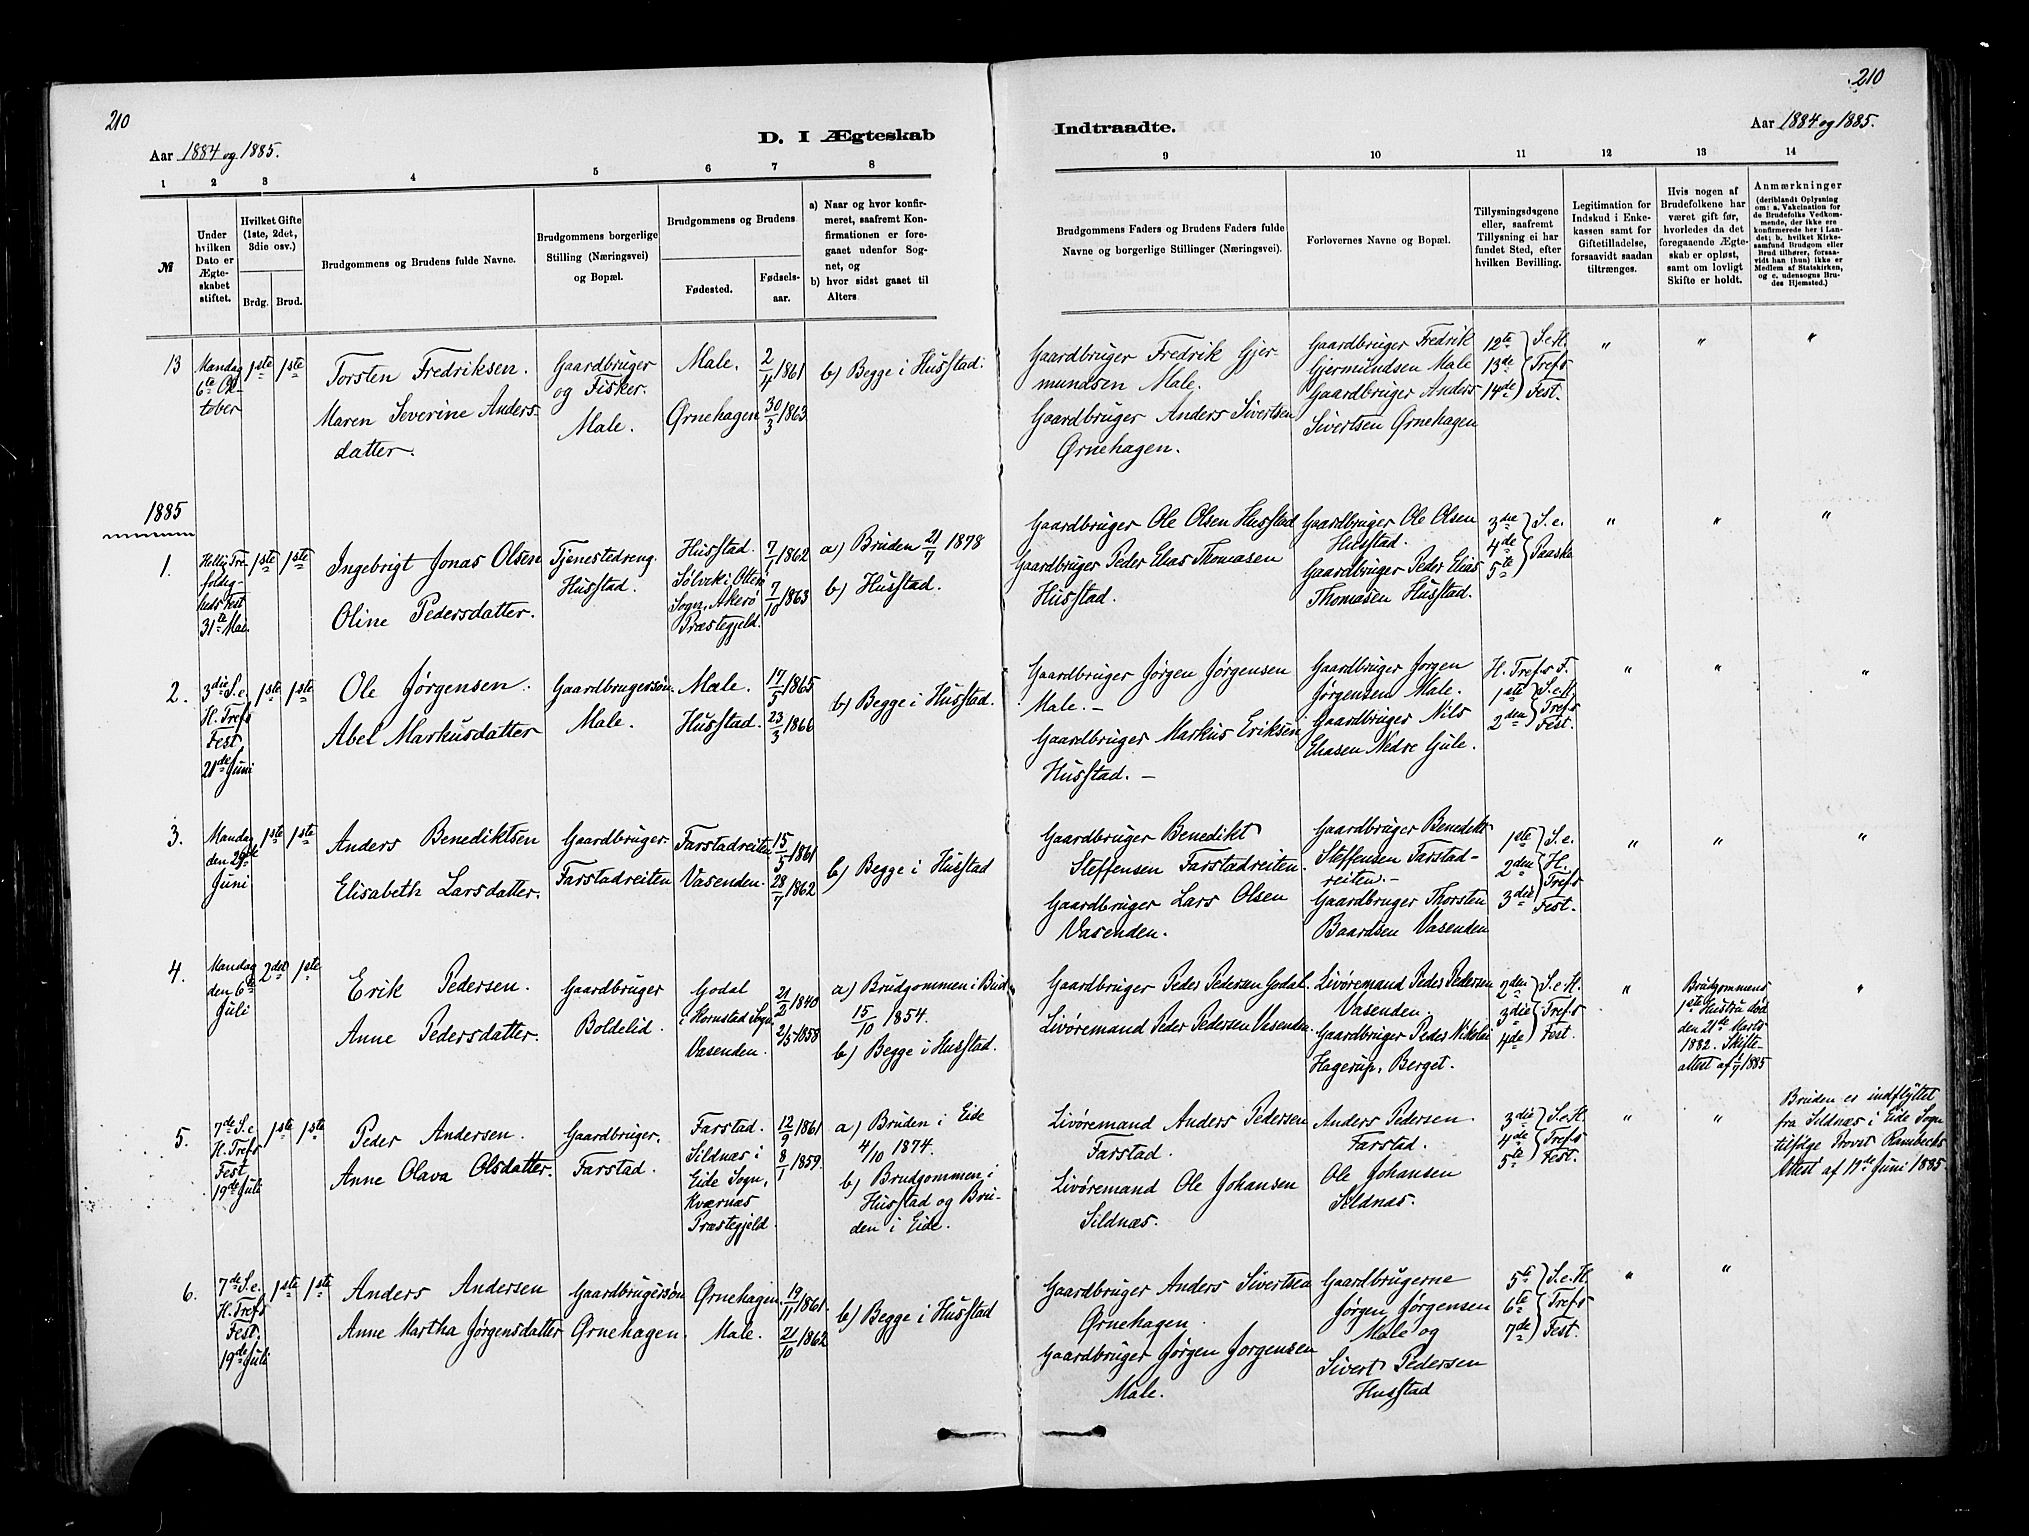 210
210
D. I Ægteskab
Indtraadte.
Aar 1884 og 1885.
Aar 1884 og 1885.
1 2 3 4 5 6 7 8
9 10 11 12 13 14
№
Under
hvilken
Dato er
Ægte-
skabet
stiftet.
Hvilket Gifte
(1ste, 2det,
3die osv.)
Brdg. Brud.
Brudgommens og Brudens fulde Navne.
Brudgommens borgerlige
Stilling (Næringsvei)
og Bopæl.
Brudgommens og Brudens
Fødested.
Fødsels-
aar.
a) Naar og hvor konfir-
meret, saafremt Kon-
firmationen er fore-
gaaet udenfor Sog-
net, og
b) hvor sidst gaaet til
Alters.
Brudgommens Faders og Brudens Faders fulde
Navne og borgerlige Stillinger (Næringsvei).
Forlovernes Navne og Bopæl.
Tillysningsdagene
eller, saafremt
Tillysning ei har
fundet Sted, efter
hvilken Bevilling.
Legitimation for
Indskud i Enke-
kassen samt for
Giftetilladelse,
forsaavidt saadan
tiltrænges.
Hvis nogen af
Brudefolkene har
været gift før,
hvorledes da det
foregaaende Ægte-
skab er opløst,
samt om lovligt
Skifte er holdt.
Anmærkninger
(deriblandt Oplysning
om: a. Vakcination for
de Brudefolks Vedkom-
mende, der ikke ere
konfirmerede her i Lan-
det; b. hvilket Kirke-
samfund Brudgom eller
Brud tilhører, forsaa-
vidt han (hun) ikke er
Medlem af Statskirken,
og c. udensogns Bru-
des Hjemsted.)
13
Mandag
6te Ok-
tober
1ste 1ste
Torsten Fredriksen.
Maren Severine Anders-
datter.
Gaardbruger
og Fisker.
Male.
Male.
Ørnehagen
2/4 1861
30/3 1863
b) Begge i Husstad.
Gaardbruger Fredrik Gjer-
mundsen Male.
Gaardbruger Anders Sivertsen
Ørnehagen.
Gaardbruger Fredrik
Gjermundsen Male
Gaardbruger Anders
Sivertsen Ørnehagen
12te S.e.H.
13de Trefs
14de Fest.
" " "
1885
1.
Hellig Tre-
foldig-
heds Fest
31te Mai.
1ste 1ste
Ingebrigt Jonas Olsen
Oline Pedersdatter.
Tjenestedreng.
Husstad.
Husstad.
Sølvek i Otterø
Sogn, Akerø
Præstegjeld.
7/1 1862
7/10 1863
a) Bruden 21/7 1878
b) Husstad.
Gaardbruger Ole Olsen Husstad
Gaardbruger Peder Elias Thomasen
Husstad.
Gaardbruger Ole Olsen
Husstad.
Gaardbruger Peder Elias
Thomasen Husstad.
3die S.e.
4de Paaske
5te
" " "
2.
3die S.e.
H. Trefs
Fest
21de Juni
1ste 1ste
Ole Jørgensen.
Abel Markusdatter
Gaardbrugersøn.
Male.
Male.
Husstad.
17/5 1865
23/3 1866
b) Begge i Husstad.
Gaardbruger Jørgen Jørgensen
Male.-
Gaardbruger Markus Eriksen
Husstad.-
Gaardbruger Jørgen
Jørgensen Male.
Gaardbruger Nils
Eliasen Nedre Gule.
H. Trefs F.
1ste S.e.H.
2den Trefs
Fest.
" " "
3.
Mandag
den 29de
Juni
1ste 1ste
Anders Benediktsen
Elisabeth Larsdatter.
Gaardbruger.
Farstadreiten
Farstadreiten
Vasenden.
15/5 1861
28/7 1862
b) Begge i Husstad
Gaardbruger Benedikt
Steffensen Farstadreiten.
Gaardbruger Lars Olsen
Vasenden.
Gaardbruger Benedikt
Steffensen Farstad-
reiten.-
Gaardbruger Thorsten
Baardsen Vasenden
1ste S.e.
2den H.
3die Trefs
Fest.
" " "
4.
Mandag
den 6te
Juli
2det 1ste
Erik Pedersen.
Anne Pedersdatter.
Gaardbruger
Boldelid.
Godal
i Kornstad Sogn
Vasenden.
21/2 1840
2/5 1858
a) Brudgommen i Bud
15/10 1854.
b) Begge i Husstad.
Gaardbruger Peder Pedersen Godal.
Livøremand Peder Pedersen Vasenden.
Livøremand Peder Pedersen
Vasenden.
Gaardbruger Peder Nikolai
Hagerup, Berget.
2den S.e.H.
3die Trefs
4de Fest.
"
Brudgommens
1ste Hustru død
den 21de Marts
1882. Skifte-
attest af 1/7 1885
"
5.
7de S.e.
H. Trefs
Fest
19de Juli
1ste 1ste
Peder Andersen.
Anne Olava Olsdatter.
Gaardbruger.
Farstad.
Farstad.
Sildnæs i
Eide Sogn,
Kværnæs
Præstegjeld.
12/9 1861
8/1 1859.
a) Bruden i Eide
4/10 1874.
b) Brudgommen i
Husstad og Bru-
den i Eide.
Livøremand Anders Pedersen
Farstad.
Livøremand Ole Johansen
Sildnæs.
Anders Pedersen
Farstad.
Ole Johansen
Sildnæs.
3die S.e.H.
4de Trefs
5te Fest.
" "
Bruden er indflyttet
fra Sildnæs i Eide Sogn
tilfølge Provst Rambechs
Attest af 17de Juni 1885.
6.
7de S.e.
H. Trefs
Fest.
19de Juli
1ste 1ste
Anders Andersen
Anne Martha Jørgensdatter
Gaardbrugersøn
Ørnehagen.
Ørnehagen.
Male.
19/11 1861.
21/10 1862
b) Begge i Husstad
Gaardbruger Anders Sivertsen
Ørnehagen.
Gaardbruger Jørgen Jørgensen
Male.
Gaardbrugerne
Jørgen Jørgensen
Male og
Sivert Pedersen
Husstad
5te S.e.H.
6te Trefs
7de Fest.
" "